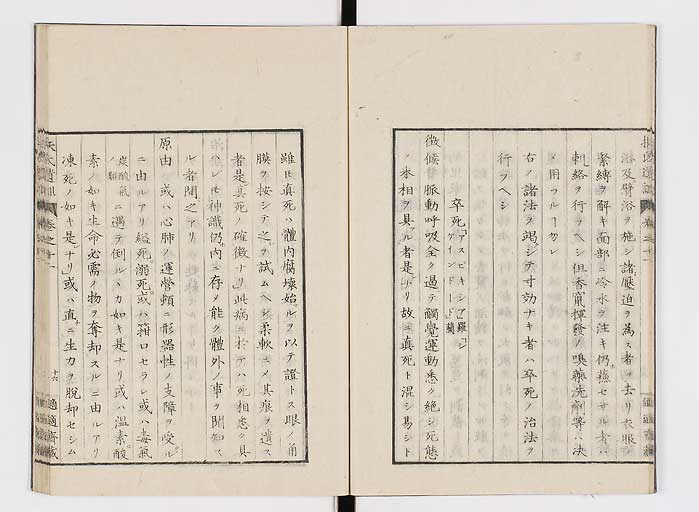 浴及臂浴ヲ施シ諸壓迫ヲ爲ス者ヲ去リ衣服
緊縛ヲ解キ面部ニ冷水ヲ注キ仍蘓セサル者ハ
刺絡ヲ行ラヘシ但香竄揮發ノ嗅藥洗劑等ハ决
メ用フルヿカレ
右ノ諸法ヲ竭シテ寸効ナキ者ハ卒死ノ治法ヲ
行ラヘシ
卒死「アスヒキシア」羅「シケインドード」蘭
徴候 昔脈動呼吸全ク過テ觸覺運動悉ク絶シ死態
ノ本相ヲ具ル者是ナリ故ニ真死ト混シ易シト
雖𪜈真死ハ體内腐壊始ルヲ以テ證トス眼ノ角
膜ヲ按シテ之ヲ試ムヘシ柔軟ニメ其痕ヲ遺ス
者是真死ノ確徴ナリ此病ニ於テハ死相悉ク具
ハレ𪜈神識仍内ニ存メ能ク體外ノ事ヲ聞知ス
ル者間之アリ
原由 或ハ心肺ノ運營頓ニ形器性ノ支障ヲ受ル
ニ由ルアリ縊死溺死或ハ箱口セラレ或ハ毒氣
炭酸氣ノ類ニ遇テ倒ルヽカ如キ是ナリ或ハ温素酸
素ノ如キ生命必需ノ物ヲ奪却スルニ由ルアリ
凍死ノ如キ是ナリ或ハ直ニ生力ヲ脱却セシム
扶氏遺訓
卷之十二
十六
適適齋藏